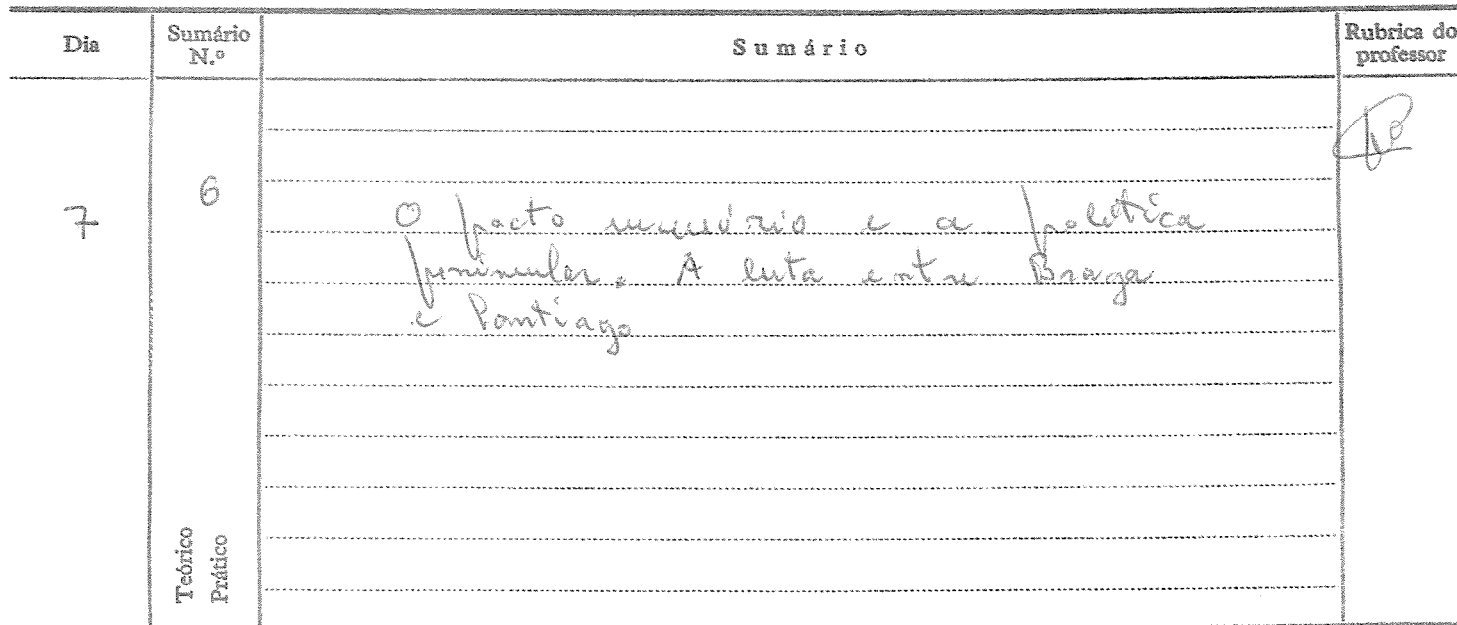 Dia Sumário N.º Sumário Rubrica do professor
7 6
O pacto sucessório e a política
peninsular. A luta entre Braga
e Santiago
Teórico
Prático